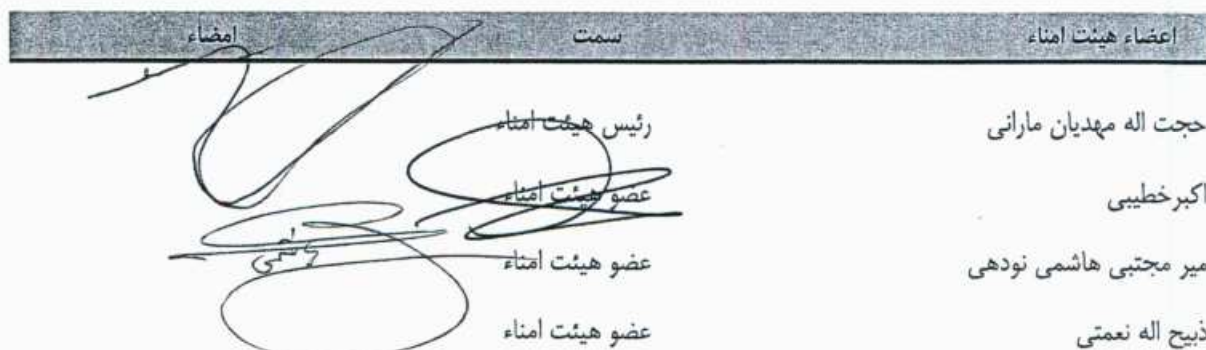 اعضاء هیئت امناء سمت امضاء
حجت اله مهدیان مارانی رئیس هیئت امناء
اکبرخطیبی عضو هیئت امناء
میر مجتبی هاشمی نودهی عضو هیئت امناء
ذبیح اله نعمتی عضو هیئت امناء